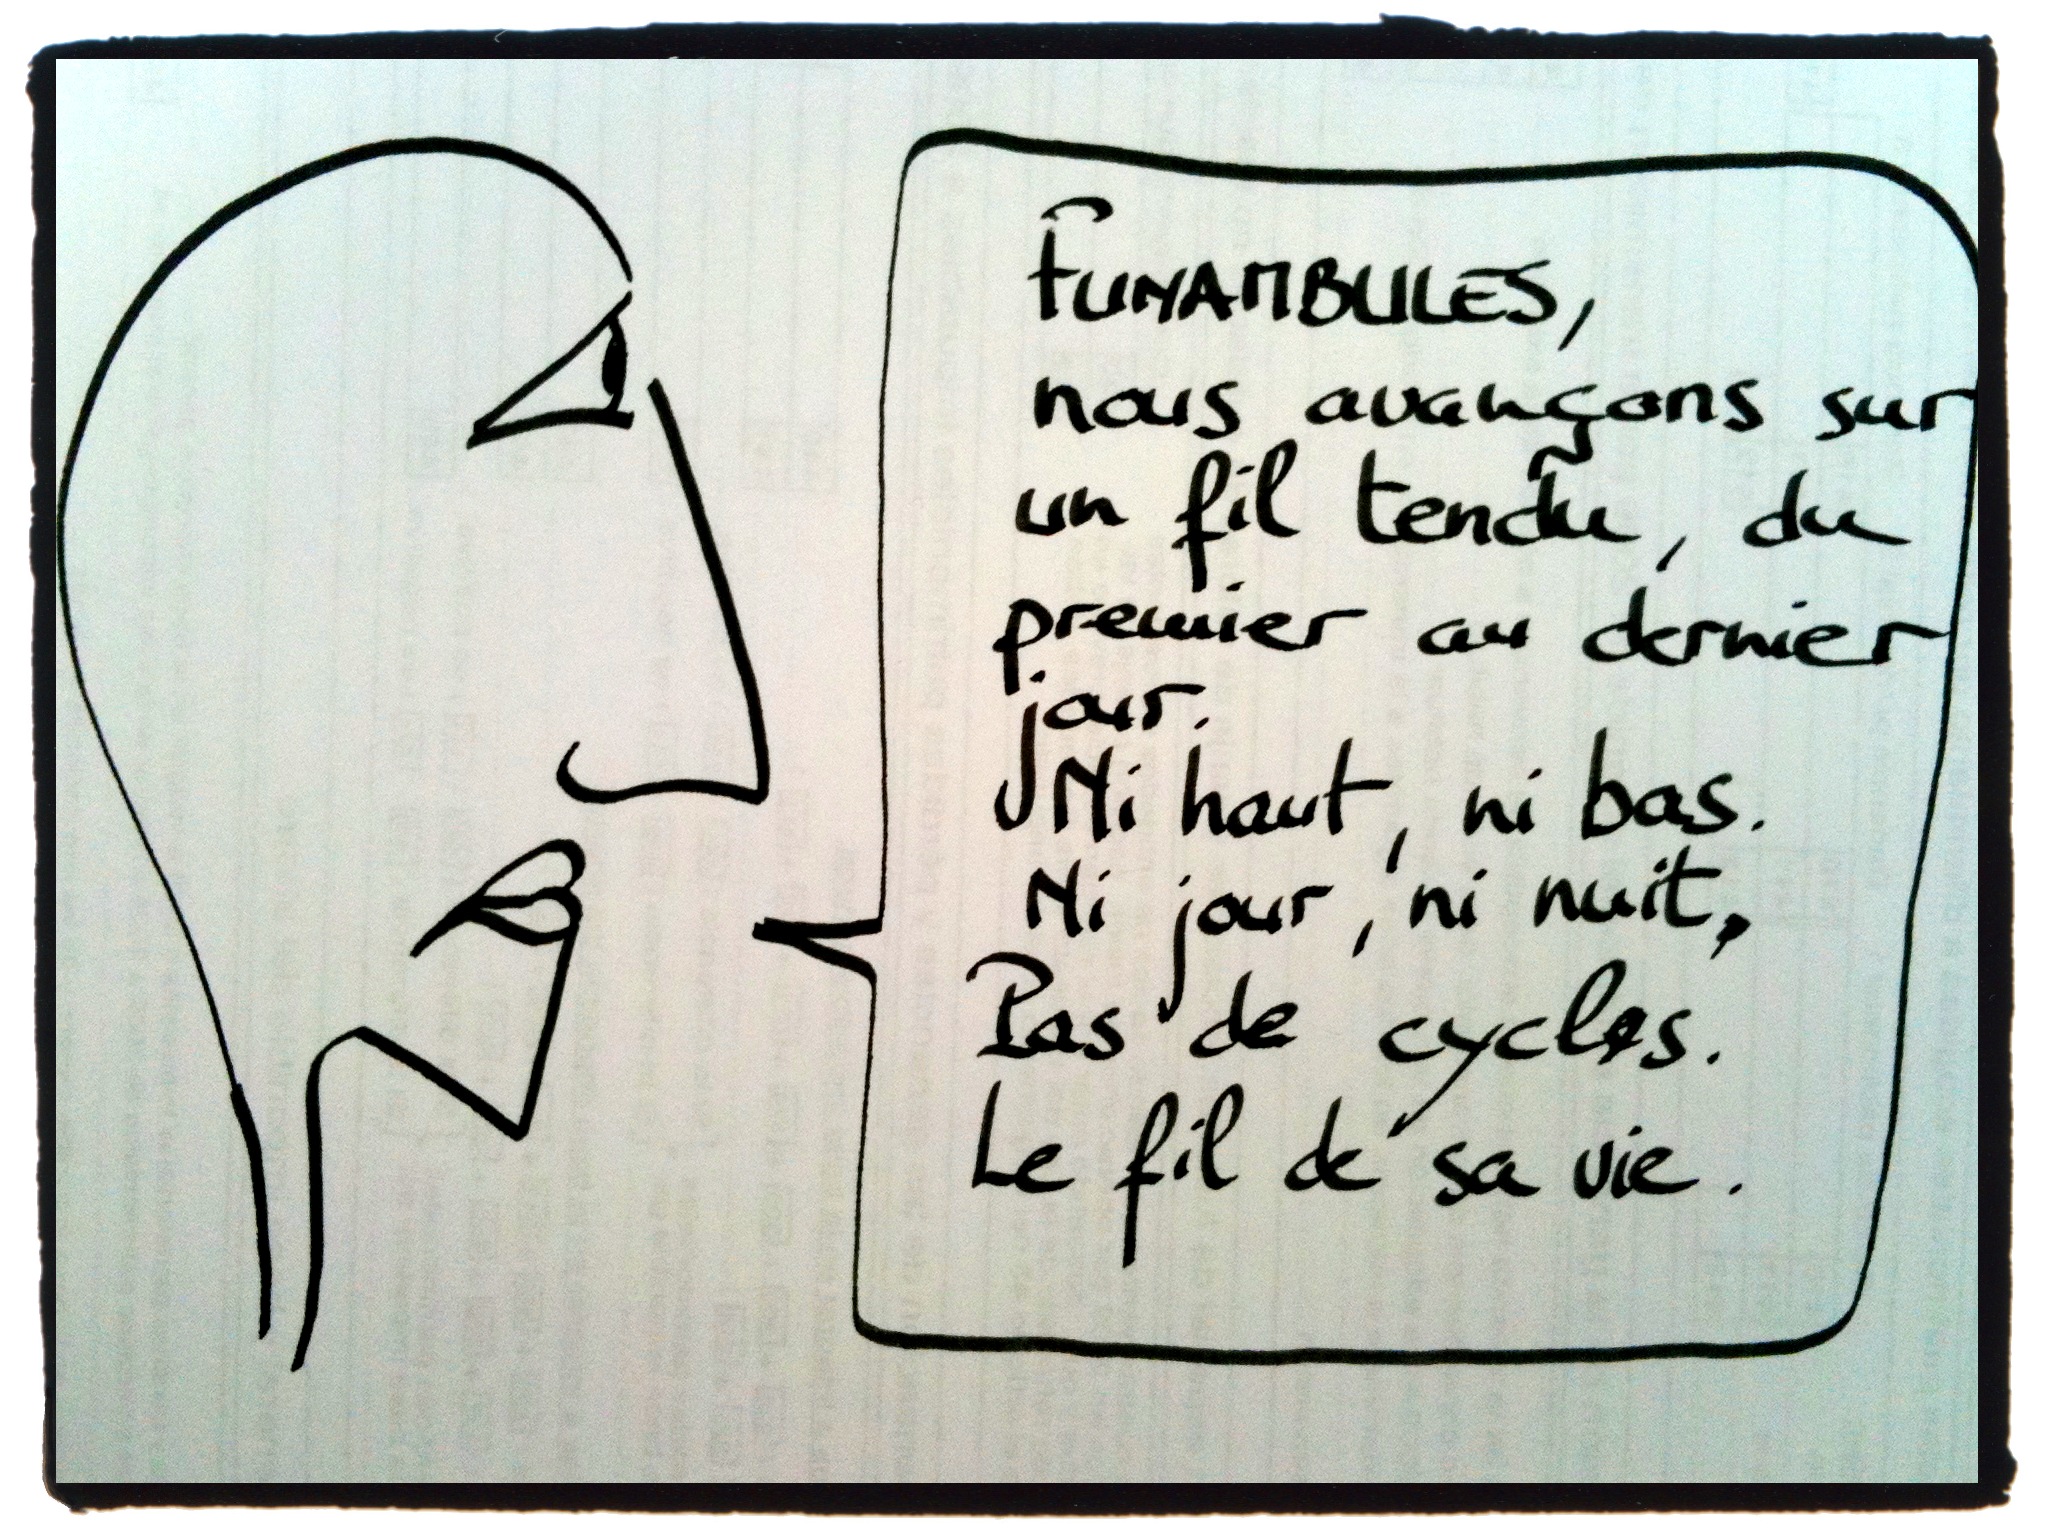 FUNAMBULES,
nous avançons sur
un fil tendu, du
premier au dernier
jour.
Ni haut, ni bas.
Ni jour, ni nuit,
Pas de cycles.
Le fil de sa vie.